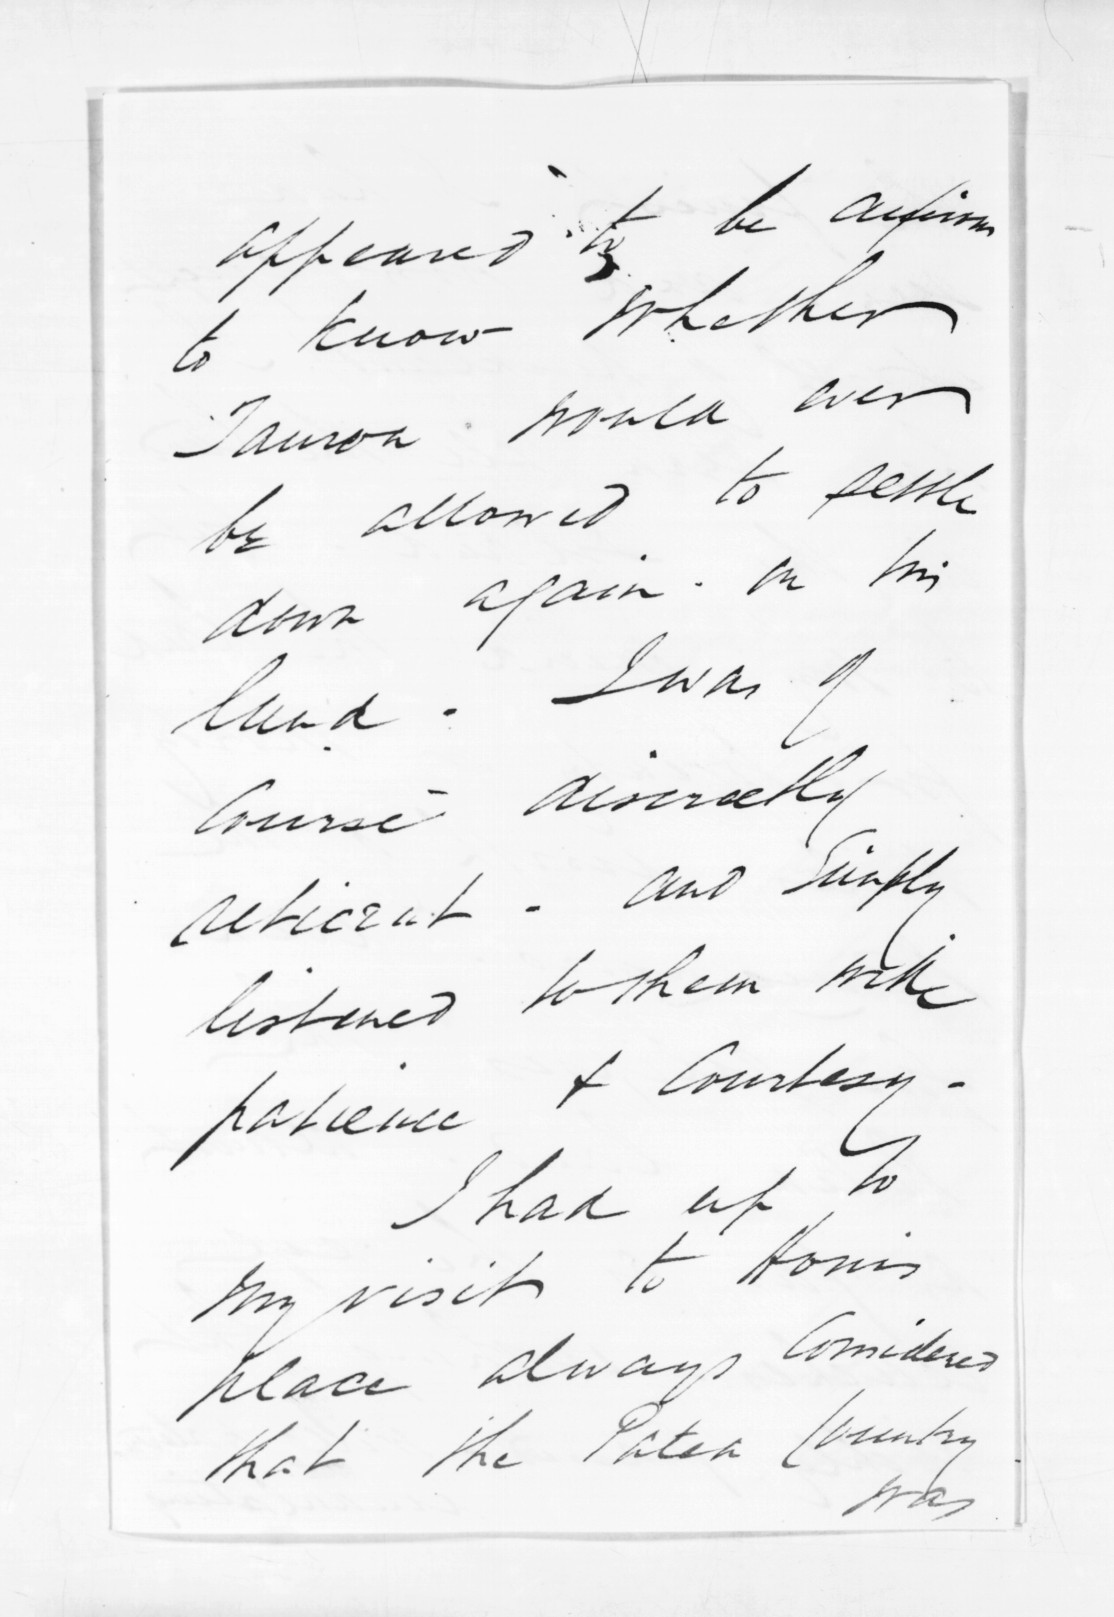 appeared to be anxious
to know whether
Tauroa would ever
be allowed to settle
down again on his
land - I was of
course discreetly
reticent - and simply
listened to them with
patience & courtesy -
I had up to
my visit to Honis
place always considered
that the Patea Country
was